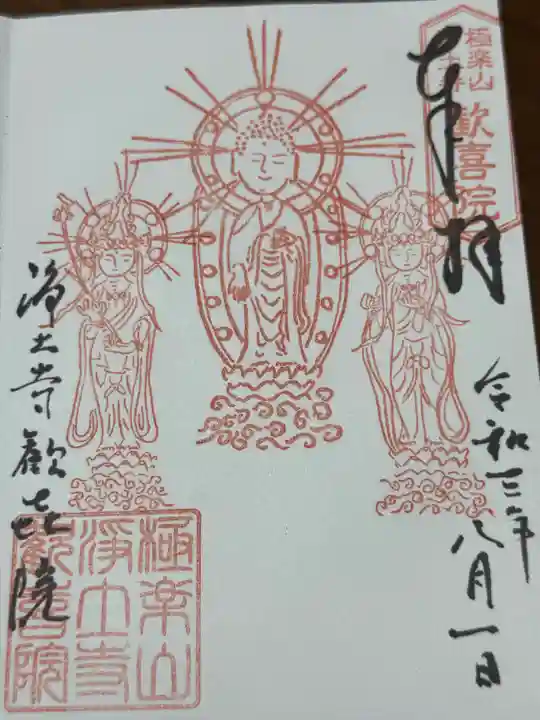 奉拝
極楽山
浄土寺
歓喜院
令和三年八月一日
浄土寺歓喜院
極楽山
浄土寺
歓喜院